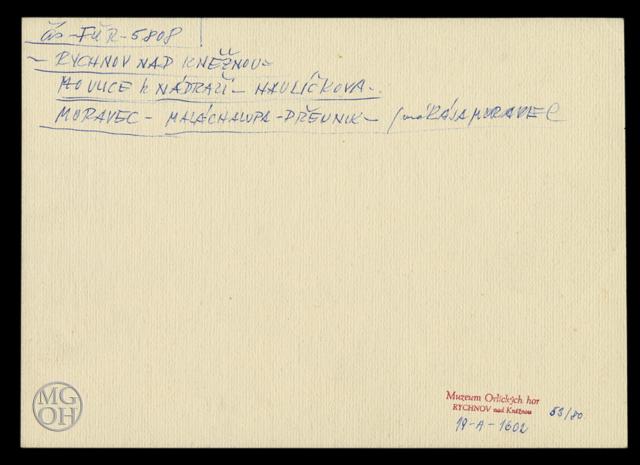 čís-FúR-5808
- RYCHNOV NAD KNĚŽNOU -
ULICE k NÁDRAŽÍ - HAVLÍČKOVA -
MORAVEC - MALÁ CHALUPA - DŘEVNÍK - MORAVEC
Muzeum Orlických hor
RYCHNOV nad Kněžnou
53/80
19-A-1602
MG
OH